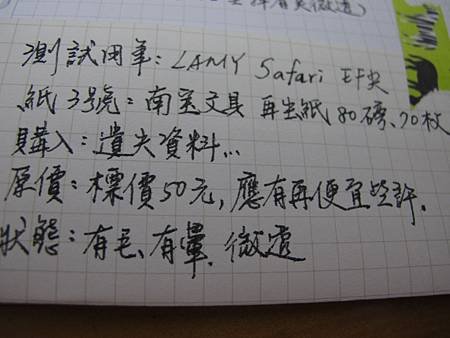 有暈微透)
測試用筆:LAMY Safari EF尖
紙3號:南宝文具 再生紙80磅、70枚
購入:遺失資料...
原價:標價50元,應有再便宜些許.
狀態:有毛、有暈、微透